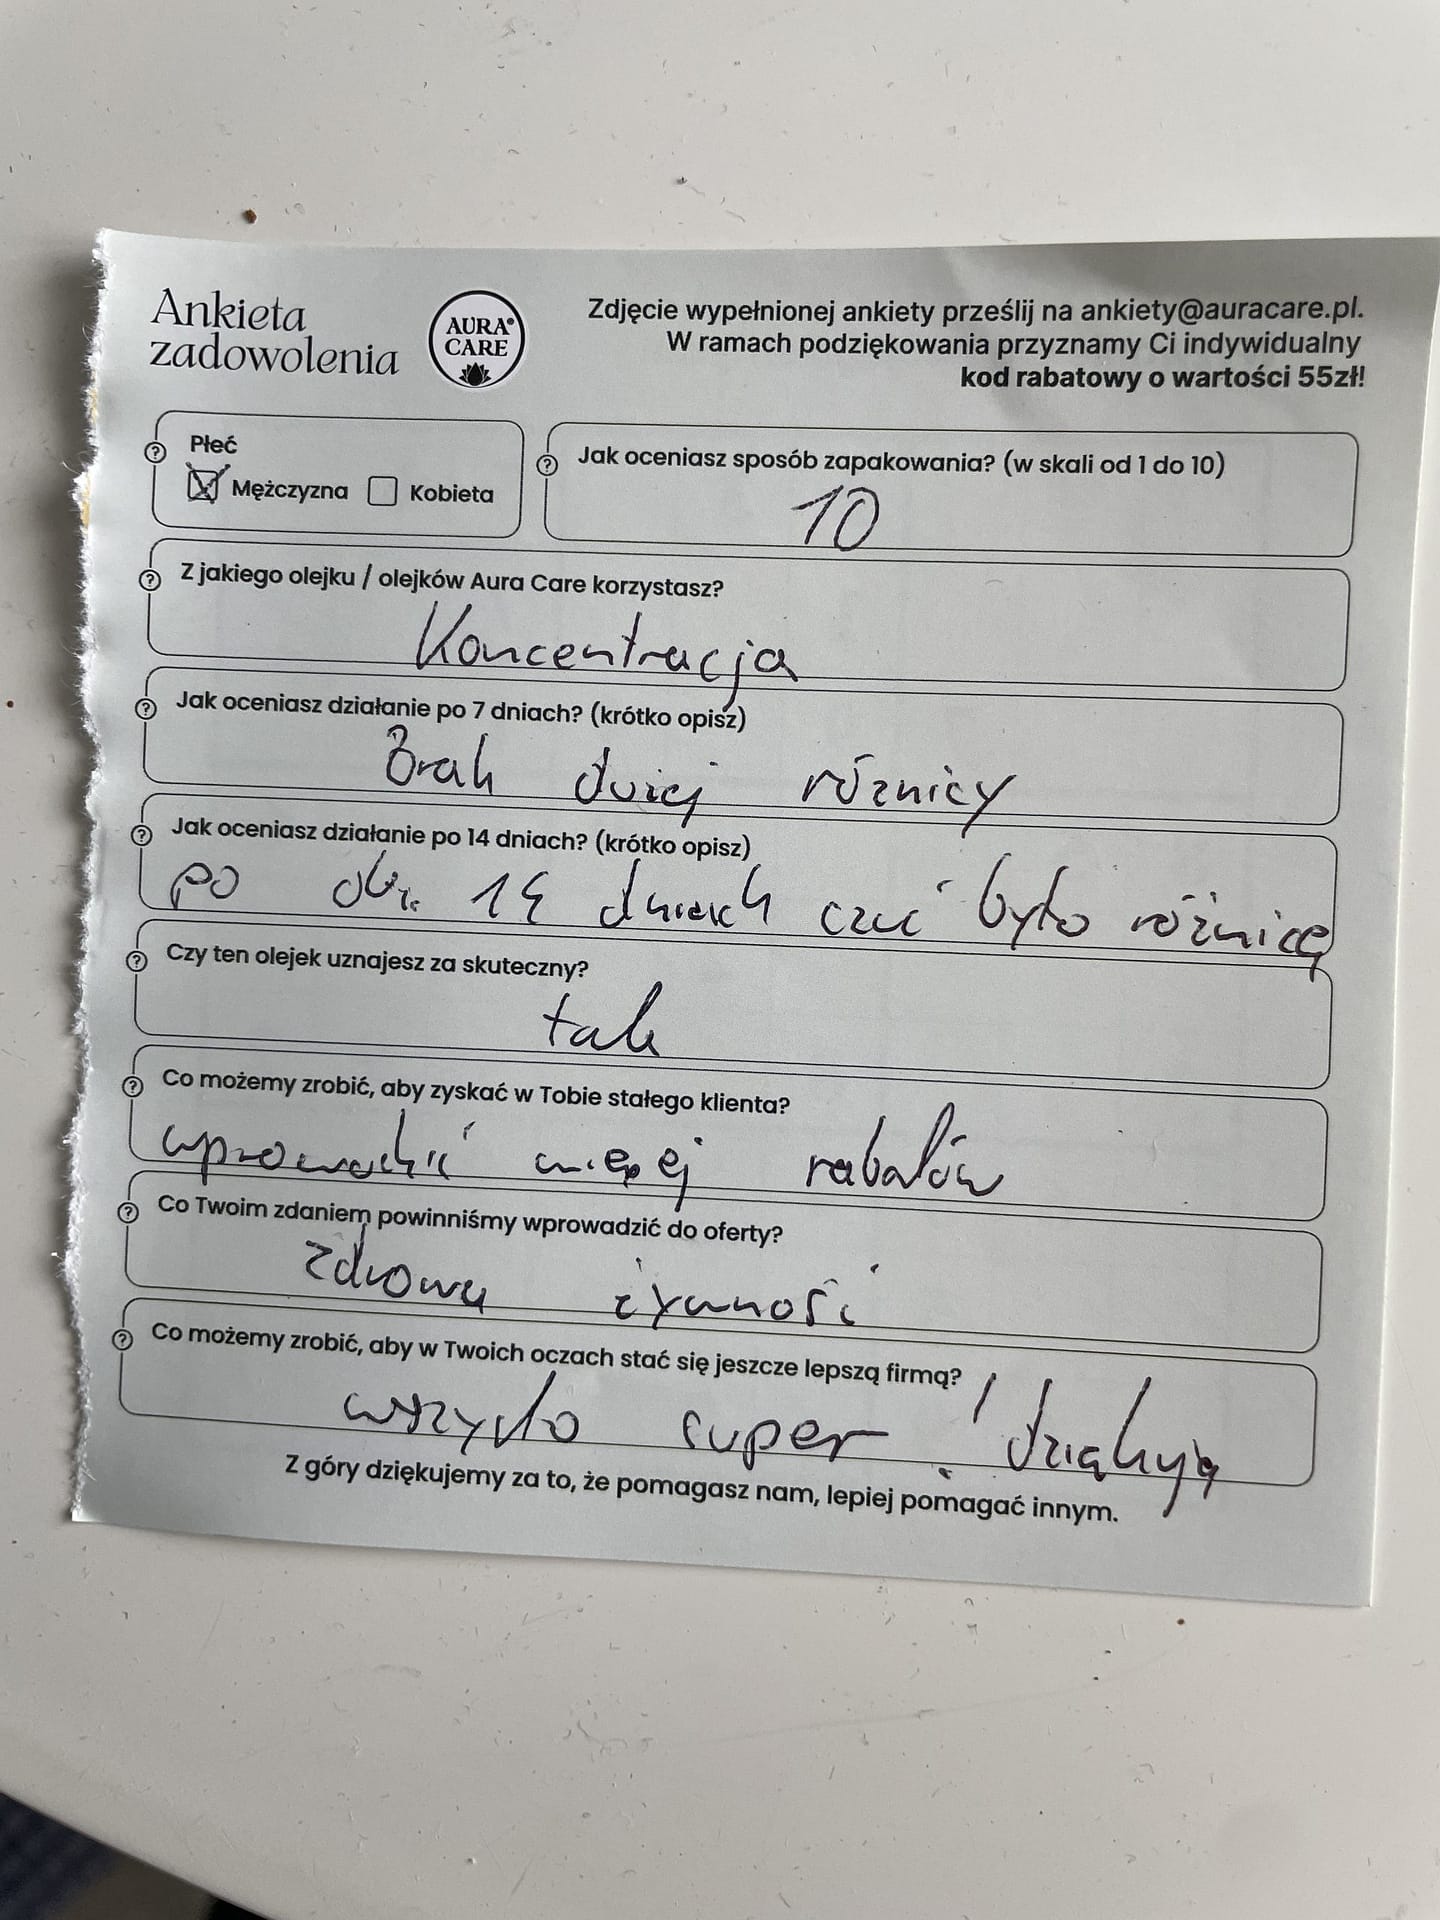 Ankieta
zadowolenia
AURA®
CARE
Zdjęcie wypełnionej ankiety prześlij na ankiety@auracare.pl.
W ramach podziękowania przyznamy Ci indywidualny
kod rabatowy o wartości 55zł!
Płeć
Mężczyzna Kobieta
Jak oceniasz sposób zapakowania? (w skali od 1 do 10)
10
Z jakiego olejku / olejków Aura Care korzystasz?
Koncentracja
Jak oceniasz działanie po 7 dniach? (krótko opisz)
Brak dużej różnicy
Jak oceniasz działanie po 14 dniach? (krótko opisz)
po ok. 14 dniach czuć było różnicę
Czy ten olejek uznajesz za skuteczny?
tak
Co możemy zrobić, aby zyskać w Tobie stałego klienta?
wprowadzić więcej rabatów
Co Twoim zdaniem powinniśmy wprowadzić do oferty?
zdrowa żywność
Co możemy zrobić, aby w Twoich oczach stać się jeszcze lepszą firmą?
wszysto super! dziękuję
Z góry dziękujemy za to, że pomagasz nam, lepiej pomagać innym.